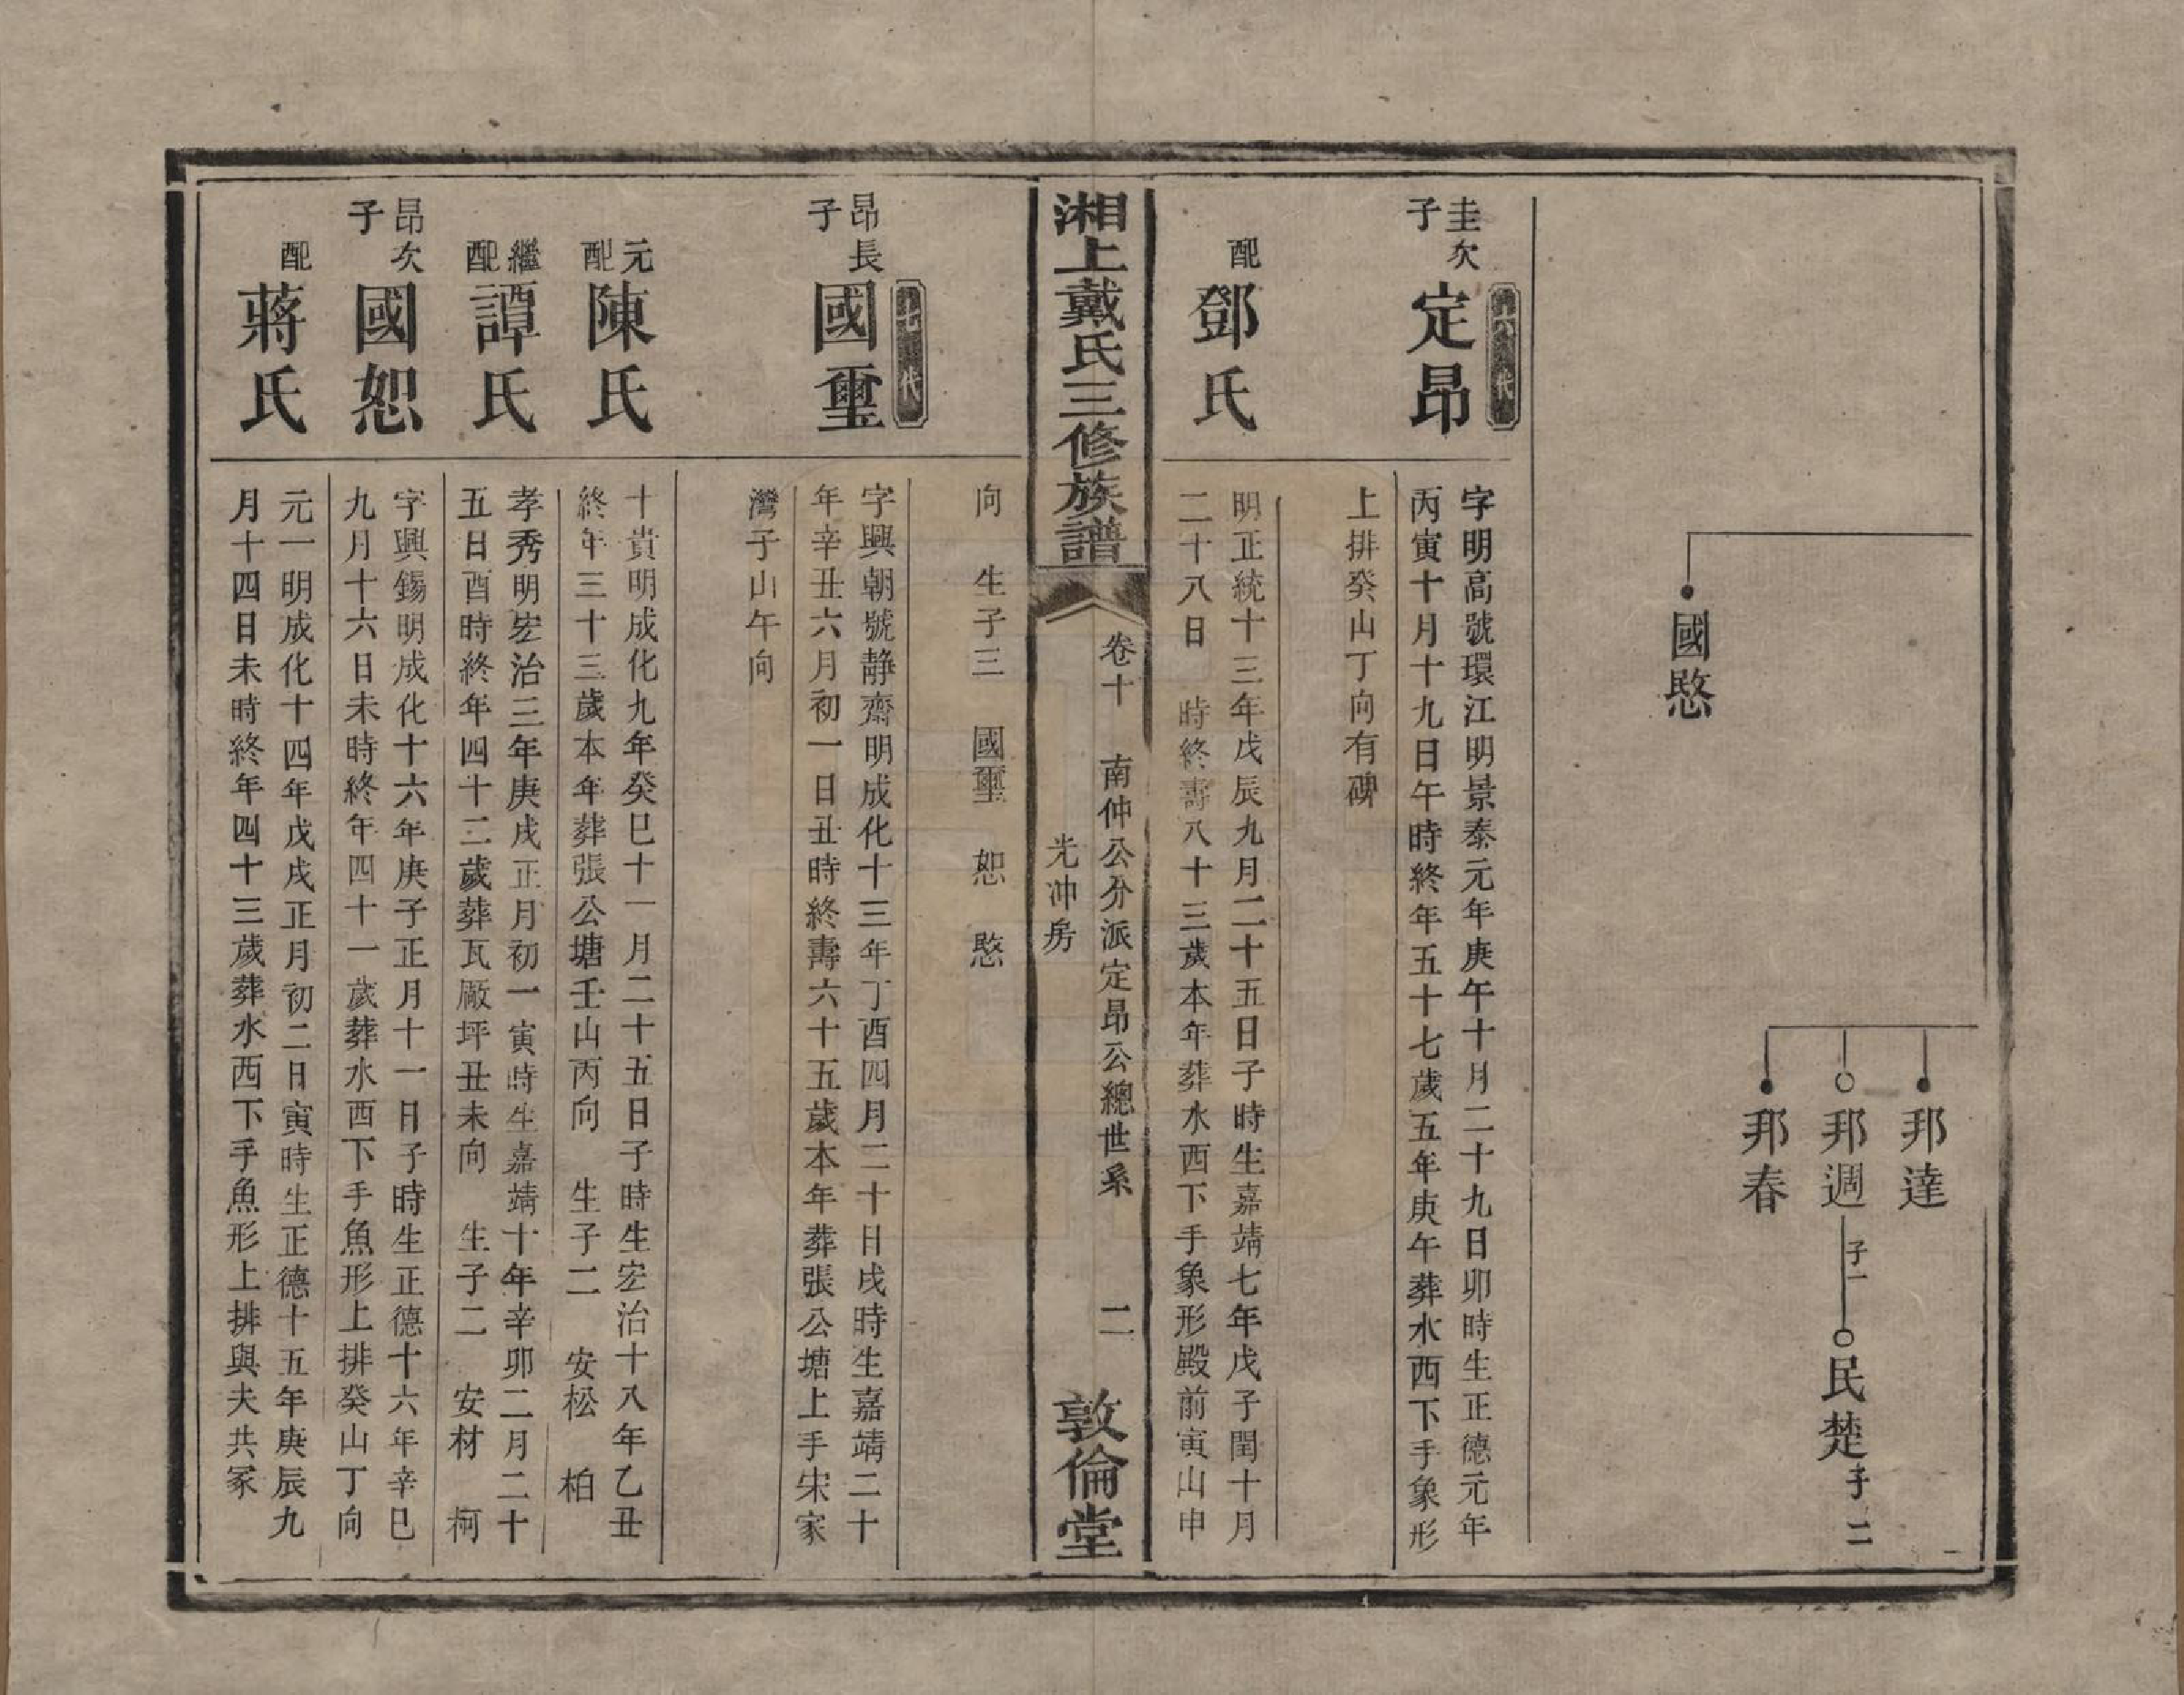 國愍
邦達
邦週
子一
民楚
子二
邦春
代
圭次子
定昂
字明高號環江明景泰元年庚午十月二十九日卯時生正德元年
丙寅十月十九日午時終年五十七歲五年庚午葬水西下手象形
上排癸山丁向有碑
配
鄧氏
明正統十三年戊辰九月二十五日子時生嘉靖七年戊子閏十月
二十八日 時終壽八十三歲本年葬水西下手象形殿前寅山申
湘上戴氏三修族譜
卷十 南仲公分派定昂公總世系 二
光冲房
敦倫堂
向 生子三 國璽 恕 愍
七代
昂長子
國璽
字興朝號静齋明成化十三年丁酉四月二十日戌時生嘉靖二十
年辛丑六月初一日丑時終壽六十五歲本年葬張公塘上手宋家
灣子山午向
元配
陳氏
十貴明成化九年癸巳十一月二十五日子時生宏治十八年乙丑
終年三十三歲本年葬張公塘壬山丙向 生子二 安松 柏
繼配
譚氏
孝秀明宏治三年庚戌正月初一寅時生嘉靖十年辛卯二月二十
五日酉時終年四十二歲葬瓦厰坪丑未向 生子二 安材 柯
昂次子
國恕
字興錫明成化十六年庚子正月十一日子時生正德十六年辛巳
九月十六日未時終年四十一歲葬水西下手魚形上排癸山丁向
配
蔣氏
元一明成化十四年戊戌正月初二日寅時生正德十五年庚辰九
月十四日未時終年四十三歲葬水西下手魚形上排與夫共冢